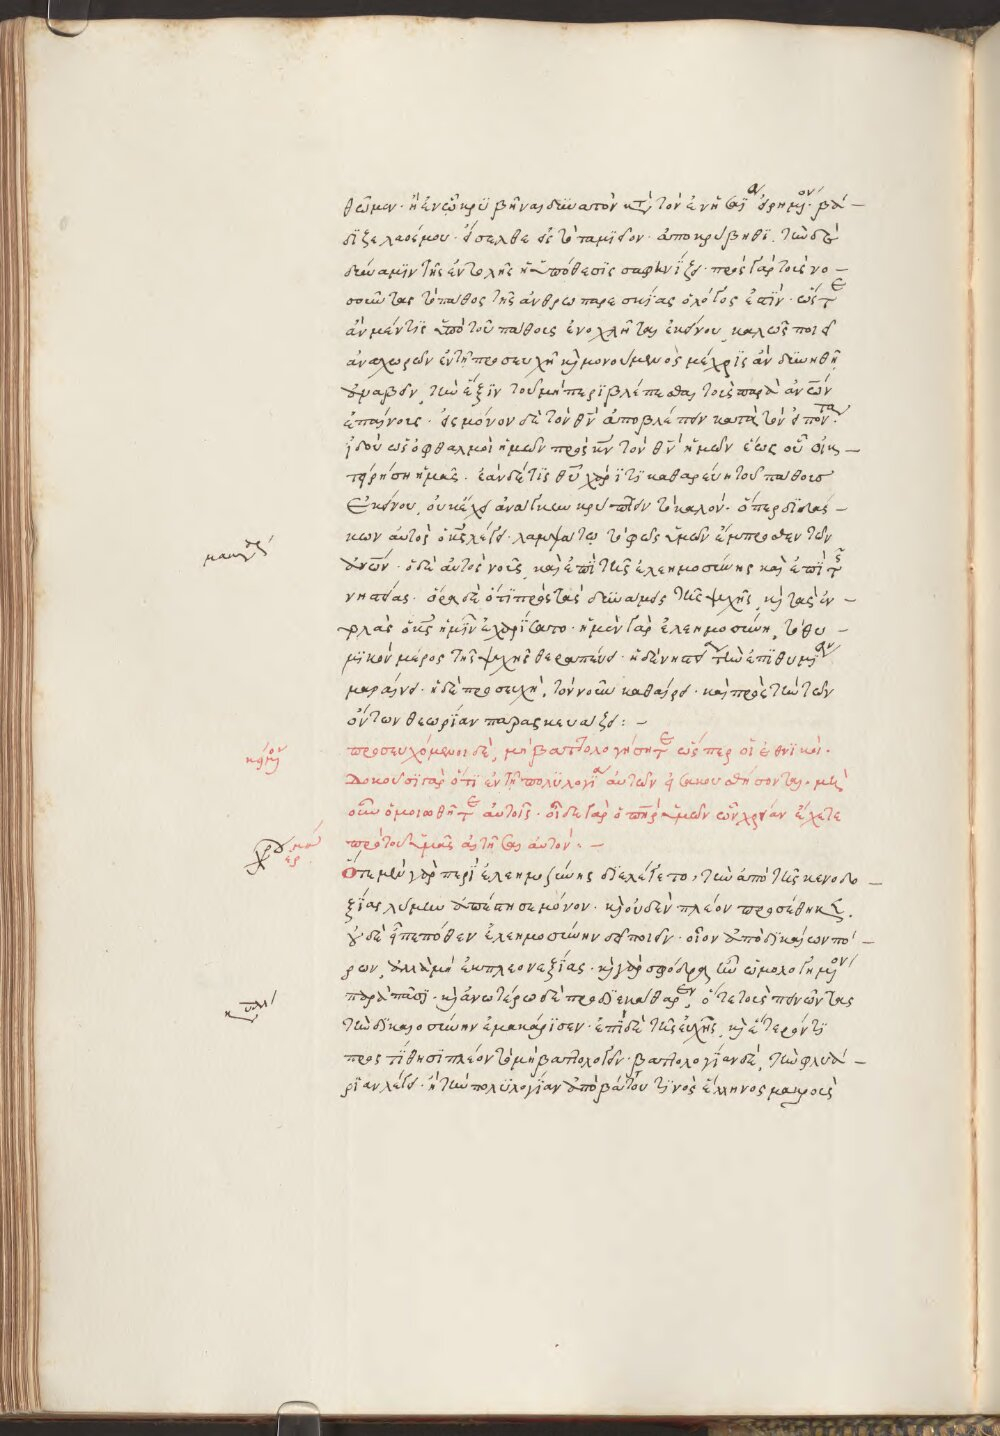 θῶμεν· ἢ ἐν ᾧ κρυβῆναι δυνατὸν κατὰ τὸν ἐν ἡσαΐᾳ εἰρημένον· βά-
διζε λαός μου· εἴσελθε εἰς τὸ ταμιεῖον· ἀποκρύβηθι. τὴν δὲ
δύναμιν τῆς ἐντολῆς ἡ ὑπόθεσις σαφηνίζει· πρὸς γὰρ τοὺς νο-
σοῦντας τὸ πάθος τῆς ἀνθρωπαρεσκείας ὁ λόγος ἐστίν· ὥστε
ἂν μέν τις ὑπὸ τοῦ πάθους ἐνοχλῆται ἐκείνου, καλῶς ποιεῖ
ἀναχωρῶν ἐν τῇ προσευχῇ καὶ μονούμενος μέχρις ἂν δυνηθῇ
λαβεῖν τὴν ἕξιν τοῦ μὴ περιβλέπεσθαι τοὺς παρὰ ἀνων
ἐπαίνους· εἰς μόνον δὲ τὸν θν ἀποβλέπειν κατὰ τὸν εἰπόντα·
ἰδοὺ ὡς ὀφθαλμοὶ ἡμῶν πρὸς κν τὸν θν ἡμῶν ἕως οὗ οἰκ-
τειρήσῃ ἡμᾶς. ἐὰν δέ τις θυ χάριτι καθαρεύῃ τοῦ πάθους
ἐκείνου, οὐκ ἔχει ἀνάγκην κρύπτειν τὸ καλόν· ὅπερ διδάσ-
κων αὐτὸς ὁ κς λέγει· λαμψάτω τὸ φῶς ὑμῶν ἔμπροσθεν τῶν
ανων· ὁ δὲ αὐτὸς νοῦς καὶ ἐπὶ τῆς ἐλεημοσύνης καὶ ἐπὶ τῆς
νηστείας. ὅρα δὲ ὅτι πρὸς τὰς δυνάμεις τῆς ψυχῆς καὶ τὰς ἐν-
τολὰς ὁ κς ἡμῖν ἐχαρίσατο· ἡ μὲν γὰρ ἐλεημοσύνη, τὸ θυ-
μικὸν μέρος τῆς ψυχῆς θεραπεύει· ἡ δὲ νηστεία τὴν ἐπιθυμίαν
μαραίνει· ἡ δὲ προσευχὴ, τὸν νοῦν καθαίρει· καὶ πρὸς τὴν τῶν
ὄντων θεωρίαν παρασκευάζει: -
κείμενον
προσευχόμενοι δὲ, μὴ βαττολογήσητε ὥσπερ οἱ ἐθνικοί·
δοκοῦσι γὰρ ὅτι ἐν τῇ πολυλογίᾳ αὐτῶν εἰσακουσθήσονται· μὴ
οὖν ὁμοιωθῆτε αὐτοῖς· οἶδε γὰρ ὁ πηρ ὑμῶν ὧν χρείαν ἔχετε
πρὸ τοῦ ὑμᾶς αἰτῆσαι αὐτόν: -
Ὅτε μὲν γὰρ περὶ ἐλεημοσύνης διελέγετο, τὴν ἀπὸ τῆς κενοδο-
ξίας λύμην ἀπέστησε μόνον· καὶ οὐδὲν πλέον προσέθηκεν.
οὐδὲ εἶπε πόθεν ἐλεημοσύνην δεῖ ποιεῖν· οἷον ἀπὸ δικαίων πό-
ρων, ἀλλὰ μὴ ἐκ πλεονεξίας· καὶ γὰρ σφόδρα ἦν ὡμολογημένον
παρὰ πᾶσι· καὶ ἀνωτέρω δὲ προδιεκάθαρεν, ὅτε τοὺς πεινῶντας
τὴν δικαιοσύνην ἐμακάρισεν· ἐπὶ δὲ τῆς εὐχῆς, καὶ ἕτερόν τι
προστίθησι πλέον τὸ μὴ βαττολογεῖν· βαττολογίαν δὲ, τὴν φλυα-
ρίαν λέγει· ἢ τὴν πολυλογίαν ἀπὸ βάττου τινὸς ἕλληνος μακροὺς